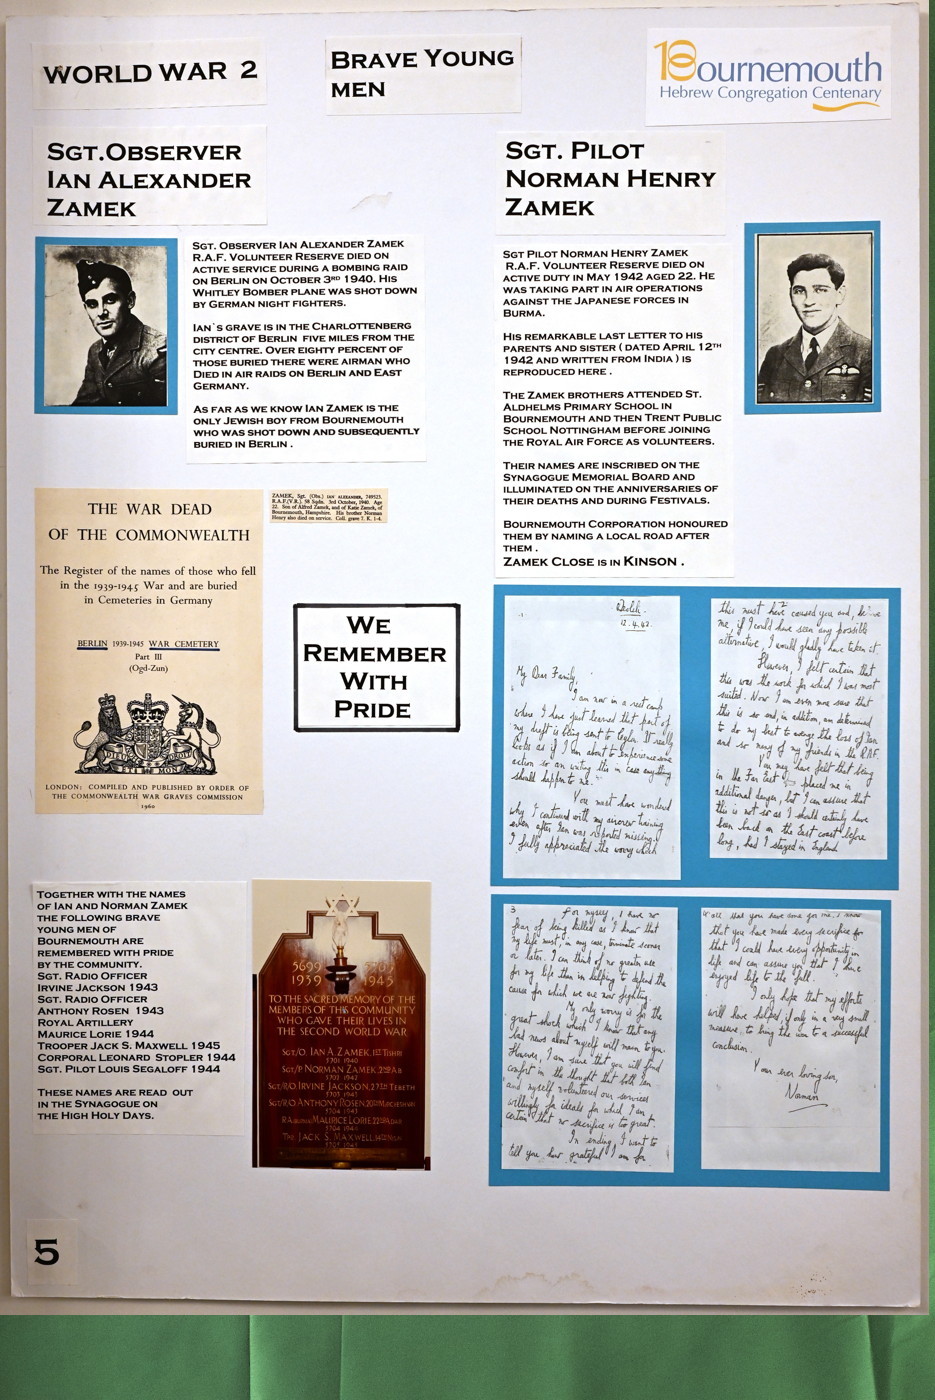 WORLD WAR 2
BRAVE YOUNG
MEN
Bournemouth
Hebrew Congregation Centenary
SGT.OBSERVER
IAN ALEXANDER
ZAMEK
SGT. OBSERVER IAN ALEXANDER ZAMEK
R.A.F. VOLUNTEER RESERVE DIED ON
ACTIVE SERVICE DURING A BOMBING RAID
ON BERLIN ON OCTOBER 3RD 1940. HIS
WHITLEY BOMBER PLANE WAS SHOT DOWN
BY GERMAN NIGHT FIGHTERS.
IAN`S GRAVE IS IN THE CHARLOTTENBERG
DISTRICT OF BERLIN FIVE MILES FROM THE
CITY CENTRE. OVER EIGHTY PERCENT OF
THOSE BURIED THERE WERE AIRMAN WHO
DIED IN AIR RAIDS ON BERLIN AND EAST
GERMANY.
AS FAR AS WE KNOW IAN ZAMEK IS THE
ONLY JEWISH BOY FROM BOURNEMOUTH
WHO WAS SHOT DOWN AND SUBSEQUENTLY
BURIED IN BERLIN .
SGT. PILOT
NORMAN HENRY
ZAMEK
SGT PILOT NORMAN HENRY ZAMEK
R.A.F. VOLUNTEER RESERVE DIED ON
ACTIVE DUTY IN MAY 1942 AGED 22. HE
WAS TAKING PART IN AIR OPERATIONS
AGAINST THE JAPANESE FORCES IN
BURMA.
HIS REMARKABLE LAST LETTER TO HIS
PARENTS AND SISTER ( DATED APRIL 12TH
1942 AND WRITTEN FROM INDIA ) IS
REPRODUCED HERE .
THE ZAMEK BROTHERS ATTENDED ST.
ALDHELMS PRIMARY SCHOOL IN
BOURNEMOUTH AND THEN TRENT PUBLIC
SCHOOL NOTTINGHAM BEFORE JOINING
THE ROYAL AIR FORCE AS VOLUNTEERS.
THEIR NAMES ARE INSCRIBED ON THE
SYNAGOGUE MEMORIAL BOARD AND
ILLUMINATED ON THE ANNIVERSARIES OF
THEIR DEATHS AND DURING FESTIVALS.
BOURNEMOUTH CORPORATION HONOURED
THEM BY NAMING A LOCAL ROAD AFTER
THEM .
ZAMEK CLOSE IS IN KINSON .
THE WAR DEAD
OF THE COMMONWEALTH
The Register of the names of those who fell
in the 1939-1945 War and are buried
in Cemeteries in Germany
BERLIN 1939-1945 WAR CEMETERY
Part III
(Ogd-Zun)
DIEU ET MON DROIT
LONDON: COMPILED AND PUBLISHED BY ORDER OF
THE COMMONWEALTH WAR GRAVES COMMISSION
1960
ZAMEK, Sgt. (Obs.) IAN ALEXANDER, 749523.
R.A.F.(V.R.). 58 Sqdn. 3rd October, 1940. Age
22. Son of Alfred Zamek, and of Katie Zamek, of
Bournemouth, Hampshire. His brother Norman
Henry also died on service. Coll. grave 7. K. 1-4.
WE
REMEMBER
WITH
PRIDE
12.4.42.
My Dear Family,
I am now in a rest camp
where I have just learned that part of
my draft is being sent to Ceylon. It really
looks as if I am about to experience some
action so am writing this in case anything
should happen to me.
You must have wondered
why I continued with my aircrew training
even after Ian was reported missing.
I fully appreciated the worry which
this must have caused you and, believe
me, if I could have seen any possible
alternative, I would gladly have taken it.
However, I felt certain that
this was the work for which I was most
suited. Now I am even more sure that
this is so and, in addition, am determined
to do my best to avenge the loss of Ian
and so many of my friends in the R.A.F.
You may have felt that being
in the Far East placed me in
additional danger, but I can assure that
this is not so as I should certainly have
been back on the East coast before
long, had I stayed in England
3.
For myself, I have no
fear of being killed as I know that
my life must, in any case, terminate sooner
or later. I can think of no greater use
for my life than in helping to defend the
cause for which we are now fighting.
My only worry is for the
great shock which I know that any
bad news about myself will mean to you.
However, I am sure that you will find
comfort in the thought that both Ian
and myself volunteered our services
willingly for ideals for which I am
certain that no sacrifice is too great.
In ending, I want to
tell you how grateful I am for
all that you have done for me. I know
that you have made every sacrifice for
that I could have every opportunity in
life and can assure you that I have
enjoyed life to the full.
I only hope that my efforts
will have helped, if only in a very small
measure, to bring the war to a successful
conclusion.
Your ever loving son,
Norman
TOGETHER WITH THE NAMES
OF IAN AND NORMAN ZAMEK
THE FOLLOWING BRAVE
YOUNG MEN OF
BOURNEMOUTH ARE
REMEMBERED WITH PRIDE
BY THE COMMUNITY.
SGT. RADIO OFFICER
IRVINE JACKSON 1943
SGT. RADIO OFFICER
ANTHONY ROSEN 1943
ROYAL ARTILLERY
MAURICE LORIE 1944
TROOPER JACK S. MAXWELL 1945
CORPORAL LEONARD STOPLER 1944
SGT. PILOT LOUIS SEGALOFF 1944
THESE NAMES ARE READ OUT
IN THE SYNAGOGUE ON
THE HIGH HOLY DAYS.
5699
1939 1945
TO THE SACRED MEMORY OF THE
MEMBERS OF THIS COMMUNITY
WHO GAVE THEIR LIVES IN
THE SECOND WORLD WAR
SGT/O. IAN A. ZAMEK, 1ST TISHRI
5701 1940
SGT/P NORMAN ZAMEK 2ND AB
5702 1942
SGT/R/O IRVINE JACKSON, 27TH TEBETH
5703 1943
SGT/R/O ANTHONY ROSEN
5704 1943
MAURICE LORIE
5704 1944
TPR. JACK S. MAXWELL
5